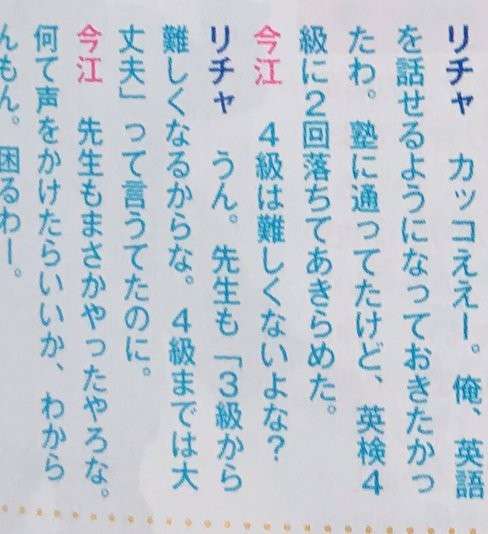 リチャ　カッコええー。俺、英語
を話せるようになっておきたかっ
たわ。塾に通ってたけど、英検4
級に2回落ちてあきらめた。
今江　4級は難しくないよな?
リチャ　うん。先生も「3級から
難しくなるからな。4級までは大
丈夫」って言うてたのに。
今江　先生もまさかやったやろな。
何て声をかけたらいいか、わから
んもん。困るわー。